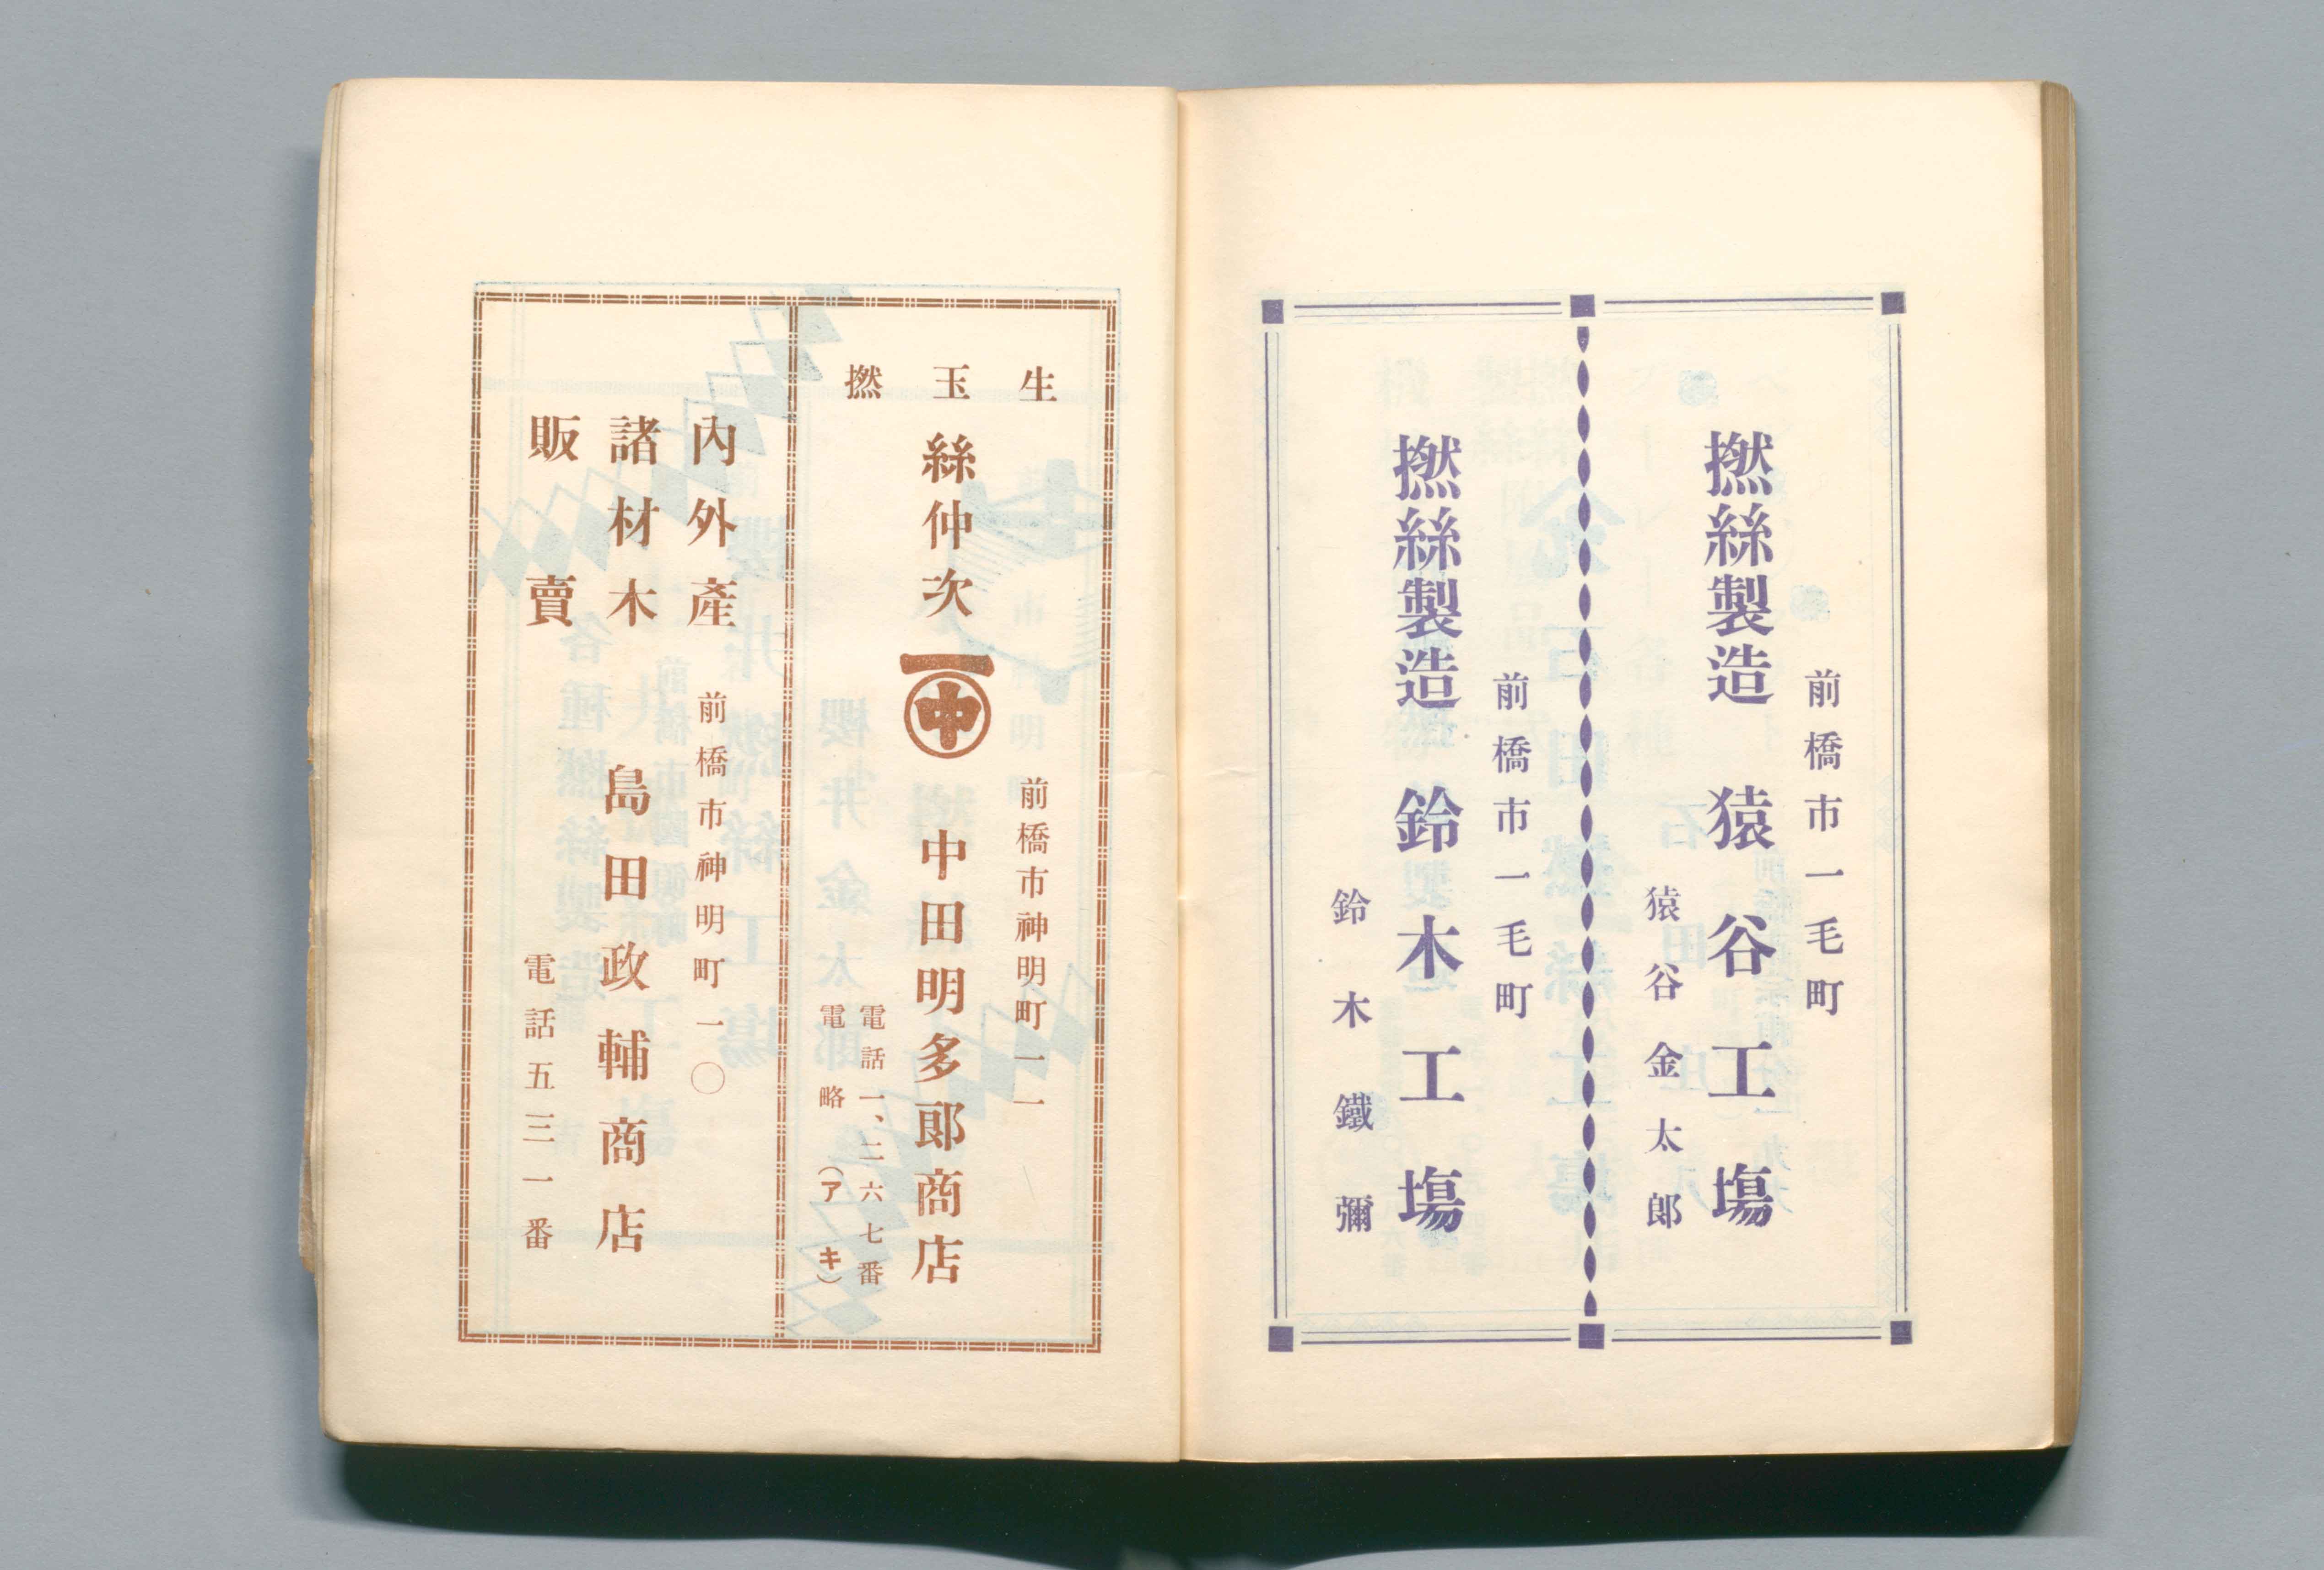 前橋市一毛町
撚絲製造 猿谷工場
猿谷金太郎
前橋市一毛町
撚絲製造 鈴木工場
鈴木鐵彌
生玉撚
前橋市神明町一一
絲仲次 中 中田明多郎商店
電話一、二六七番
電略(アキ)
內外產
前橋市神明町一〇
諸材木 島田政輔商店
販賣
電話五三一番